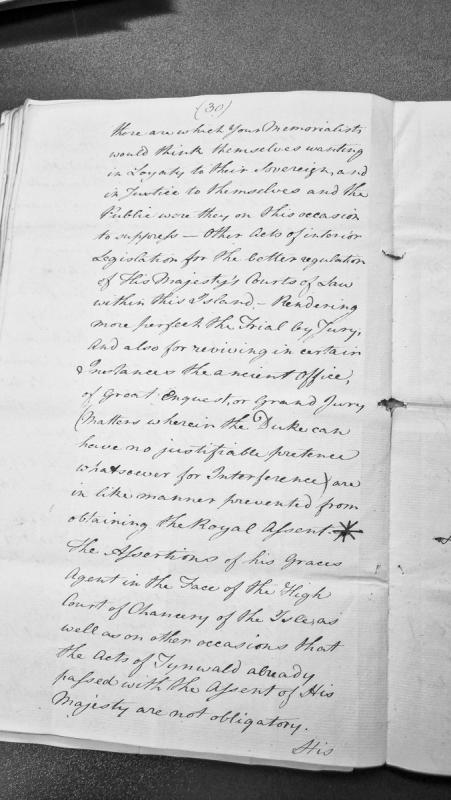 (30)
there are which Your Memorialists
would think themselves wanting
in Loyalty to their Sovereign, and
in Justice to themselves and the
Public were they on this occasion
to suppress — Other Acts of interior
Legislation for the better regulation
of His Majesty's Courts of Law
within this Island — Rendering
more perfect the Trial by Jury,
And also for reviving in certain
Instances the ancient Office,
of Great Enquest, or Grand Jury
(Matters wherein the Duke can
have no justifiable pretence
whatsoever for Interference) are
in like manner prevented from
obtaining the Royal Assent.
The Assertions of his Graces
Agent in the Face of the High
Court of Chancery of the Isle, as
well as on other occasions that
the Acts of Tynwald already
passed with the Assent of His
Majesty are not obligatory.
His